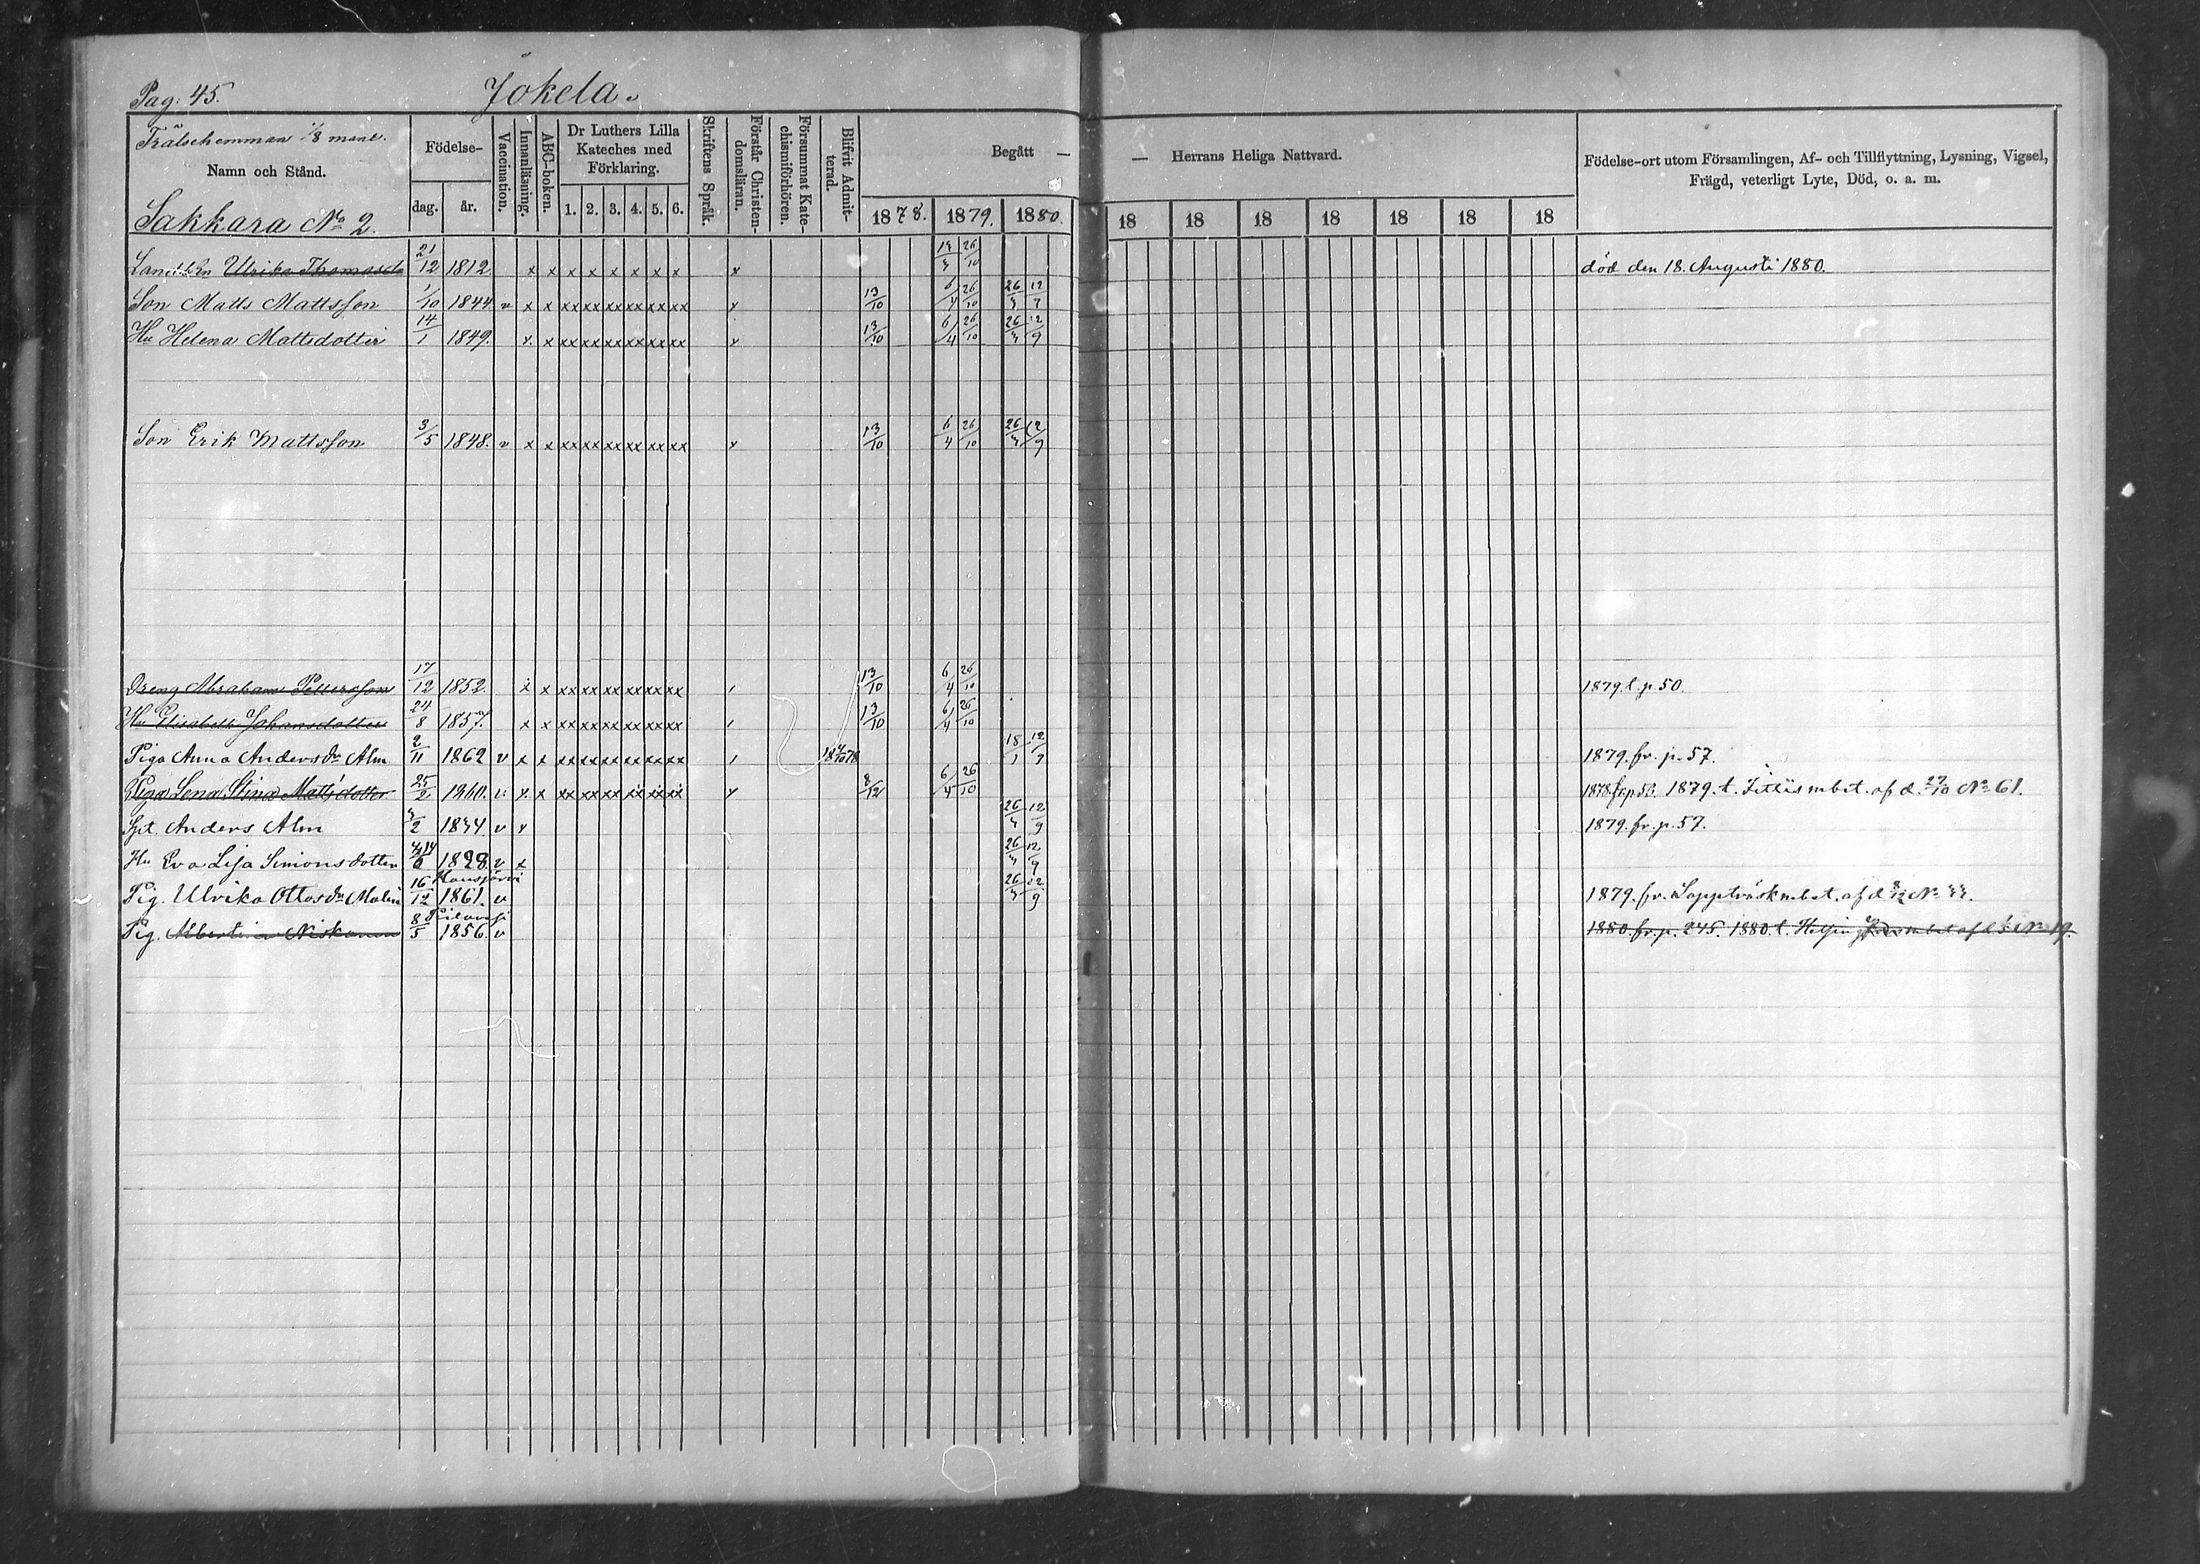 Pag: 45. Jokela.
Frälsehemman 1/8 mantl.
Namn och Stånd.
Sakkara No 2.
Födelse-
dag. år.
Vaccination.
Innanläsning.
ABC-boken.
Dr Luthers Lilla Kateches med Förklaring.
1. 2. 3. 4. 5. 6.
Skriftens Språk.
Förstår Christendomsläran.
Försummat Katechismiförhören.
Blifvit Admitterad.
Begått — — Herrans Heliga Nattvard.
1878. 1879. 1880. 18 18 18 18 18 18 18
Födelse-ort utom Församlingen, Af- och Tillflyttning, Lysning, Vigsel,
Frägd, veterligt Lyte, Död, o. a. m.
Ulrika Thomasd. 21/12 1812. x x x x x x x x x 26/10 död den 18. Augusti 1880.
Son Matts Mattsson 1/10 1844. v x x xx xx xx xx xx xx x 13/10 6/4 26/10
Hu Helena Mattsdotter 14/1 1849. x x xx xx xx xx xx xx x 13/10 6/4 26/10 12/9
Son Erik Mattsson 3/5 1848. v x x xx xx xx xx xx xx x 13/10 6/4 26/10 12/9
Dreng Abraham Pettersson 17/12 1852. x x xx xx xx xx xx xx 13/10 6/4 26/10 1879. t. p. 50.
Hu Elisabeth Johansdotter 24/8 1857. x x xx xx xx xx xx xx 13/10 6/4 26/10
Piga Anna Andersdr Alm 2/11 1862 v x x xx xx xx xx xx xx 1879. fr. p. 57.
Piga Lena Stina Mattsdotter 25/2 1860. v. x x xx xx xx xx xx xx x 8/12 6/4 26/10 1878. fr. p. 53. 1879. t. mbet. af d. 27/10 No 61.
Anders Alm 1834 v x 12/9 1879. fr. p. 57.
Hu Eva Lisa Simonsdotter 1828. v x 12/9
Hausjärvi
Pig. Ulrika Ottosdr Malin 16/12 1861. v 1879. fr. Lappträsk mbet. af d.
Pig. Albertina Niskanen 8/5 1856. v 1880. fr. p. 245. 1880. t. No 19.